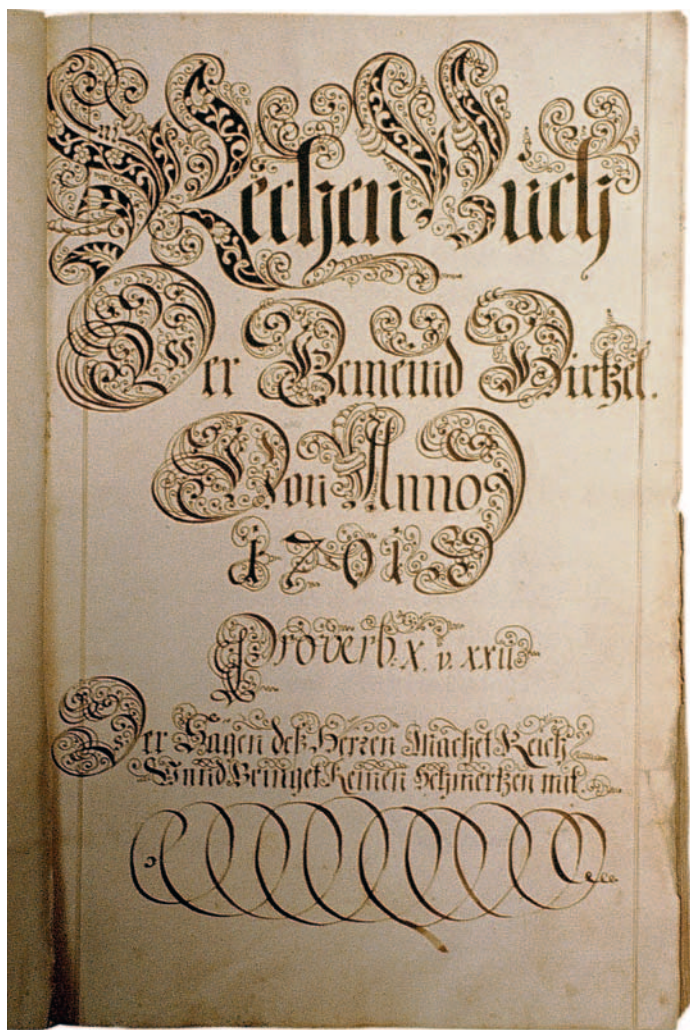 Rechen Buch
Der Gemeind Hirtzel.
Von Anno
1701
Proverb: X. v. xxii
Der Sägen deß Herren Machet Reich
Vnnd Bringet Keinen Schmertzen mit.